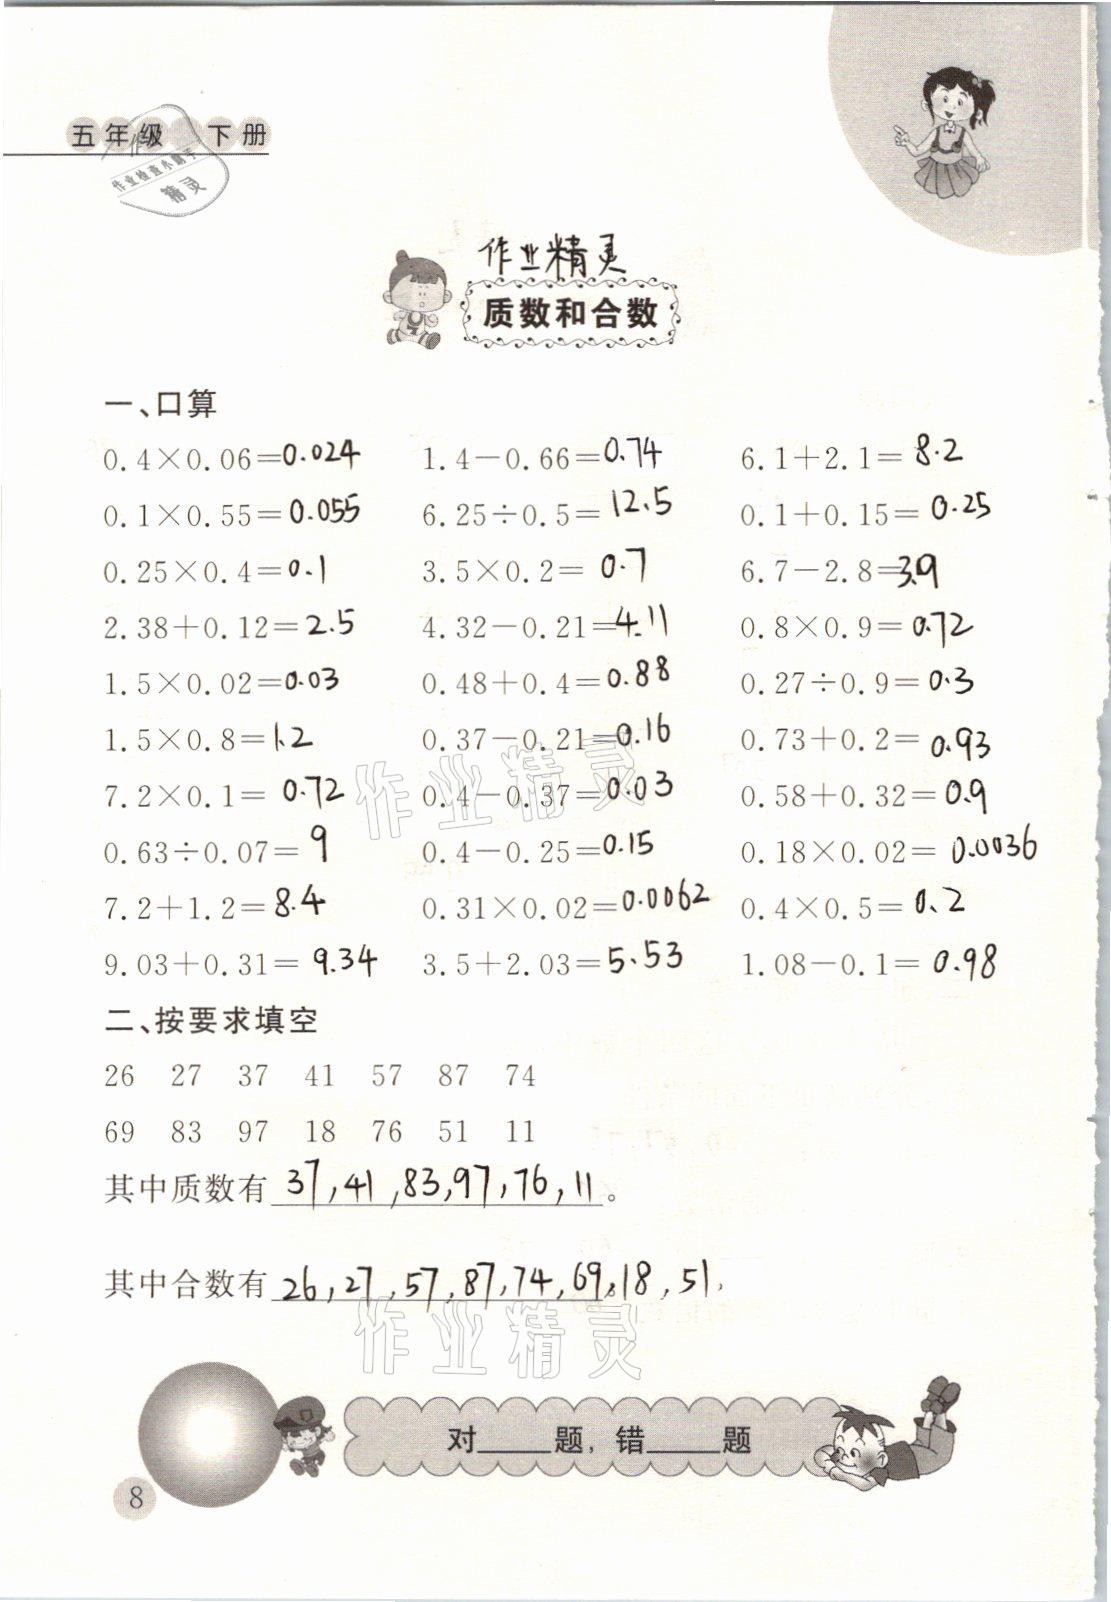 五年级 下册
作业检查小助手
精灵
作业精灵
质数和合数
一、口算
0.4×0.06=0.024 1.4-0.66=0.74 6.1+2.1=8.2
0.1×0.55=0.055 6.25÷0.5=12.5 0.1+0.15=0.25
0.25×0.4=0.1 3.5×0.2=0.7 6.7-2.8=3.9
2.38+0.12=2.5 4.32-0.21=4.11 0.8×0.9=0.72
1.5×0.02=0.03 0.48+0.4=0.88 0.27÷0.9=0.3
1.5×0.8=1.2 0.37-0.21=0.16 0.73+0.2=0.93
7.2×0.1=0.72 0.4-0.37=0.03 0.58+0.32=0.9
0.63÷0.07=9 0.4-0.25=0.15 0.18×0.02=0.0036
7.2+1.2=8.4 0.31×0.02=0.0062 0.4×0.5=0.2
9.03+0.31=9.34 3.5+2.03=5.53 1.08-0.1=0.98
作业精灵
二、按要求填空
26 27 37 41 57 87 74
69 83 97 18 76 51 11
其中质数有 37,41,83,97,76,11。
其中合数有 26,27,57,87,74,69,18,51。
作业精灵
对____题，错____题
8